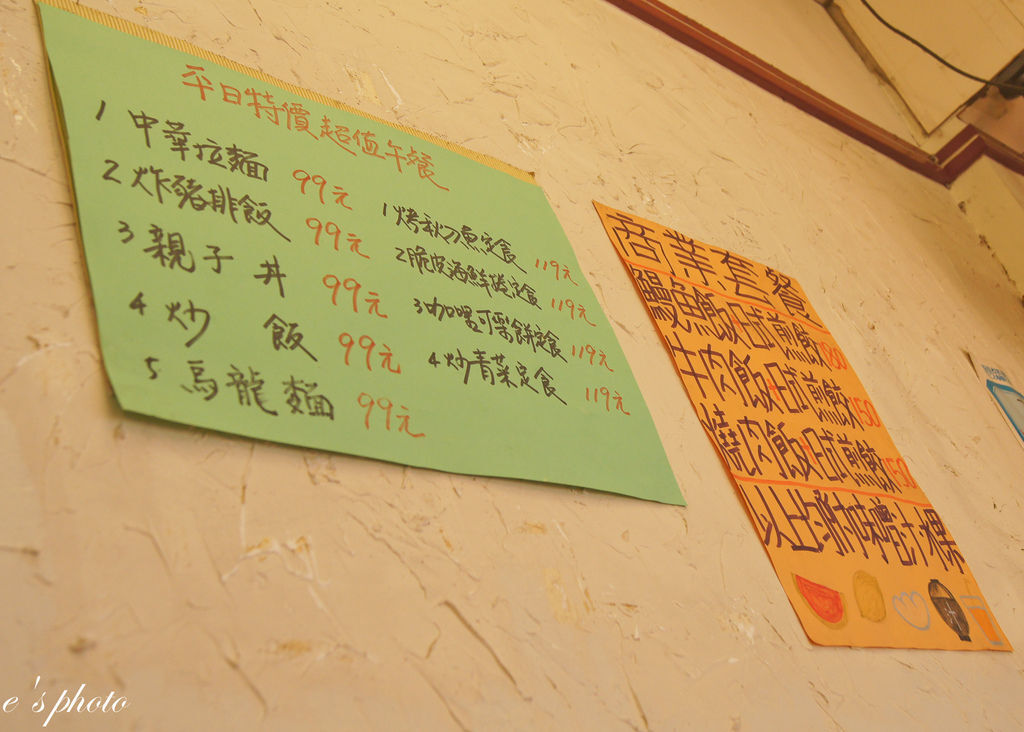 平日特價超值午餐
1 中華拉麵 99元
2 炸豬排飯 99元
3 親子丼 99元
4 炒飯 99元
5 烏龍麵 99元
1 烤秋刀魚定食 119元
2 脆皮海鮮捲定食 119元
3 咖喱可樂餅定食 119元
4 炒青菜定食 119元
商業套餐
鰻魚飯+日式煎餃180
牛肉飯+日式煎餃150
燒肉飯+日式煎餃150
以上均附味噌汁.水果
e's photo